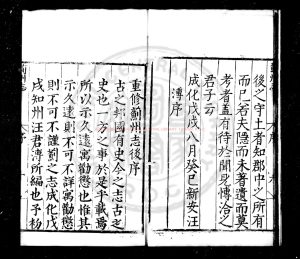 後之守土者知郡中之所有
而已若夫隠而未著遺而莫
考者蓋有待於聞見博洽之
君子云
成化戊戌八月癸巳新安汪
溥序
重修蘄州志後序
古之邦國有史今之志古之
史也一方之事於是乎載焉
所以示久遠寓勸懲也惟其
示久遠則不可不詳寓勸懲
則不可不謹罰之志成化戊
戌知州汪君溥所編也予初